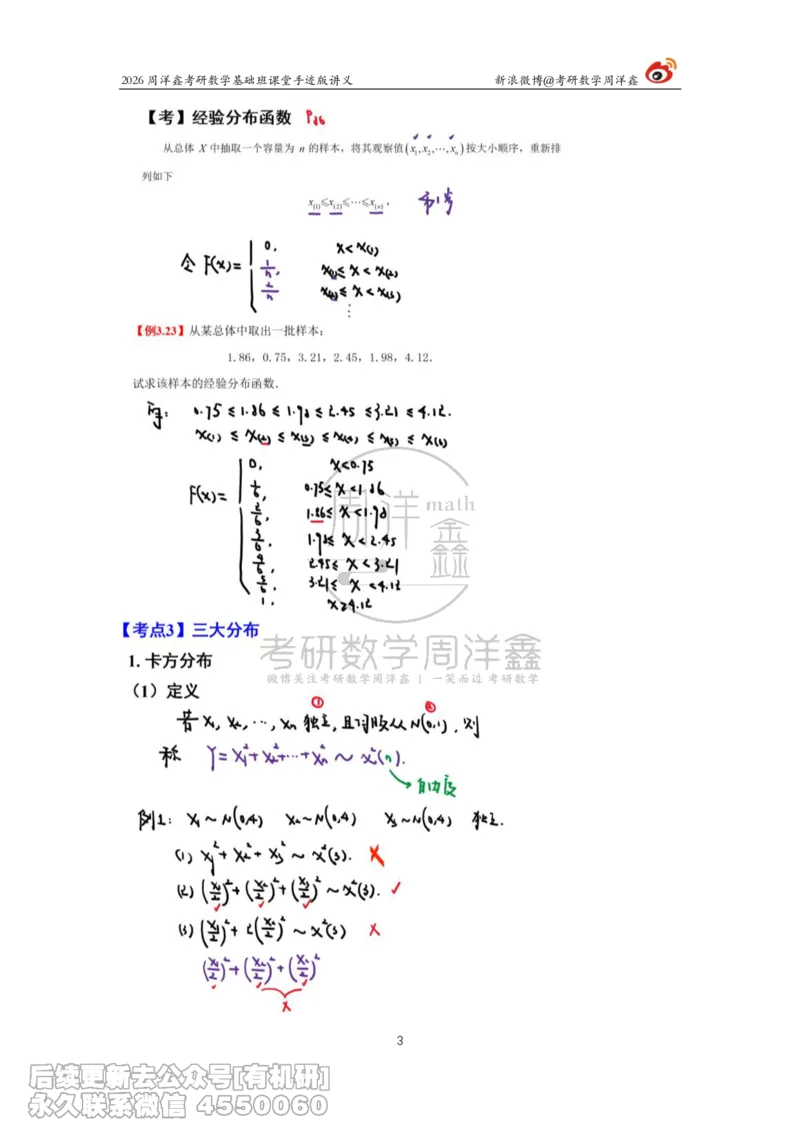 2026 周洋鑫考研数学基础班课堂手迹版讲义 新浪微博@考研数学周洋鑫
【考】经验分布函数 P86
从总体 X 中抽取一个容量为 n 的样本，将其观察值(x₁,x₂,⋯,xₙ)按大小顺序，重新排
列如下
x₍₁₎⩽x₍₂₎⩽⋯⩽x₍ₙ₎，
令 F(x)= { 0, x<x₍₁₎
1/n, x₍₁₎≤x<x₍₂₎
2/n x₍₂₎≤x<x₍₃₎
⋮
【例3.23】从某总体中取出一批样本：
1.86，0.75，3.21，2.45，1.98，4.12．
试求该样本的经验分布函数．
解: 0.75≤1.86≤1.98≤2.45≤3.21≤4.12.
x₍₁₎≤x₍₂₎≤x₍₃₎≤x₍₄₎≤x₍₅₎≤x₍₆₎
F(x)= { 0, x<0.75
1/6, 0.75≤x<1.86
2/6, 1.86≤x<1.98
3/6, 1.98≤x<2.45
4/6, 2.45≤x<3.21
5/6, 3.21≤x<4.12
1, x≥4.12
周洋鑫 math
【考点3】三大分布
考研数学周洋鑫
1. 卡方分布
微博关注考研数学周洋鑫 | 一笑而过 考研数学
（1）定义
① ②
若 X₁, X₂, ⋯, Xₙ 独立, 且均服从N(0,1), 则
称 Y=X₁²+X₂²+⋯+Xₙ² ~ χ²(n).
自由度
例1: X₁~N(0,4) X₂~N(0,4) X₃~N(0,4) 独立.
(1) X₁²+X₂²+X₃² ~ χ²(3). ✗
(2) (X₁/2)²+(X₂/2)²+(X₃/2)² ~ χ²(3). ✓
(3) (X₁/2)²+2(X₂/2)² ~ χ²(3) ✗
(X₁/2)²+(X₂/2)²+(X₂/2)²
✗
3
后续更新去公众号[有机研]
永久联系微信 4550060